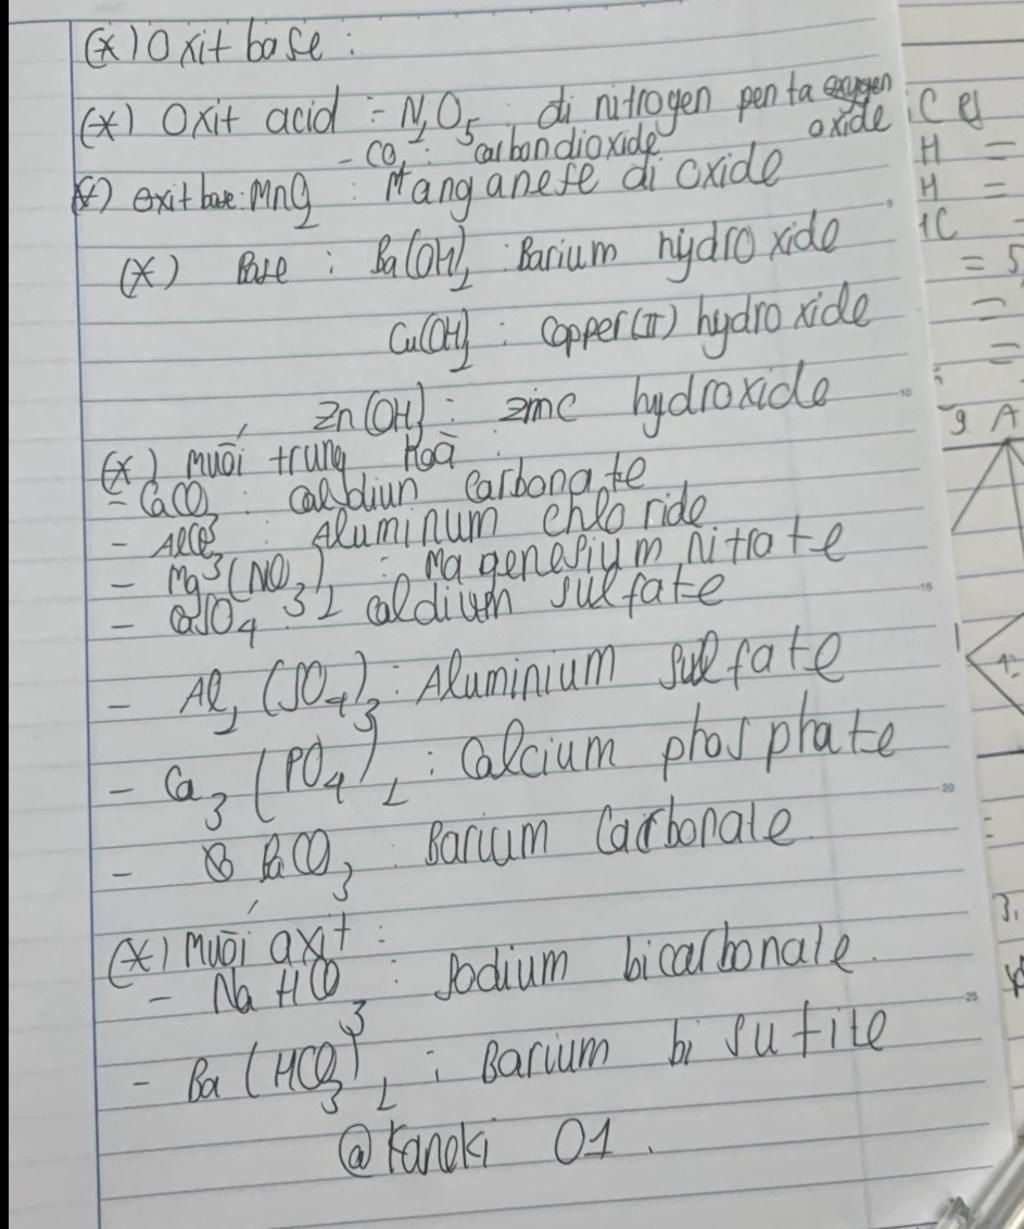 (*) Oxit base :
(*) Oxit acid : - N2O5 : di nitrogen penta oxide
- CO2 : carbondioxide
(*) oxit base: MnO2 : Manganese di oxide
(*) Base : Ba(OH)2 : Barium hydroxide
Cu(OH)2 : Copper(II) hydroxide
Zn(OH)2 : zinc hydroxide
(*) Muối trung hoà :
- CaCO3 : caldiun carbonate
- AlCl3 : Aluminum chloride
- Mg(NO3)2 : Magenesium nitrate
- CaSO4 : caldium sulfate
- Al2(SO4)3 : Aluminium sulfate
- Ca3(PO4)2 : Calcium phosphate
- BaCO3 : Barium Carbonale
(*) Muối axit :
- NaHCO3 : Sodium bicarbonale.
- Ba(HCO3)2 : Barium bi sufite
@Kaneki 01.
5
10
15
20
25
H =
H =
= 5
=
=
9 A
3.